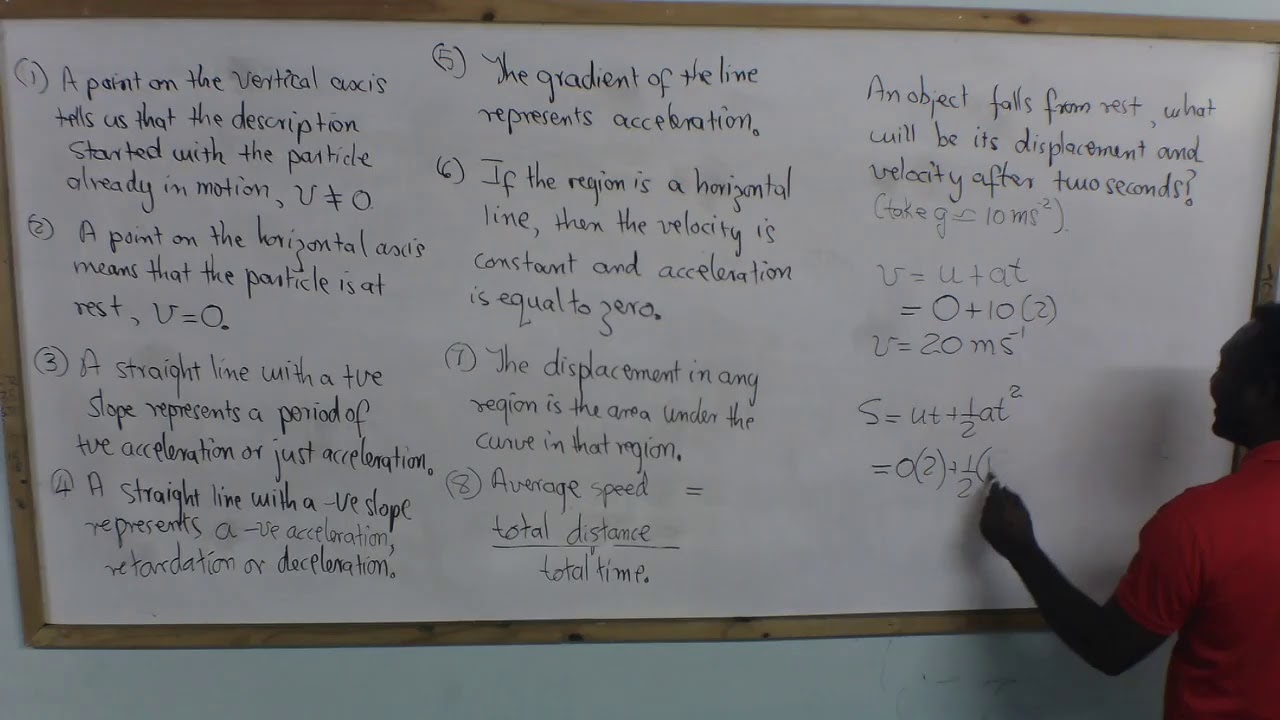 (1) A point on the vertical axis
tells us that the description
started with the particle
already in motion, v ≠ 0.
(2) A point on the horizontal axis
means that the particle is at
rest, v = 0.
(3) A straight line with a +ve
slope represents a period of
+ve acceleration or just acceleration.
(4) A straight line with a -ve slope
represents a -ve acceleration,
retardation or deceleration.
(5) The gradient of the line
represents acceleration.
(6) If the region is a horizontal
line, then the velocity is
constant and acceleration
is equal to zero.
(7) The displacement in any
region is the area under the
curve in that region.
(8) Average speed =
total distance
total time.
An object falls from rest, what
will be its displacement and
velocity after two seconds?
(take g = 10 ms⁻²).
v = u + at
= 0 + 10(2)
v = 20 ms⁻¹
S = ut + ½at²
= 0(2) + ½(